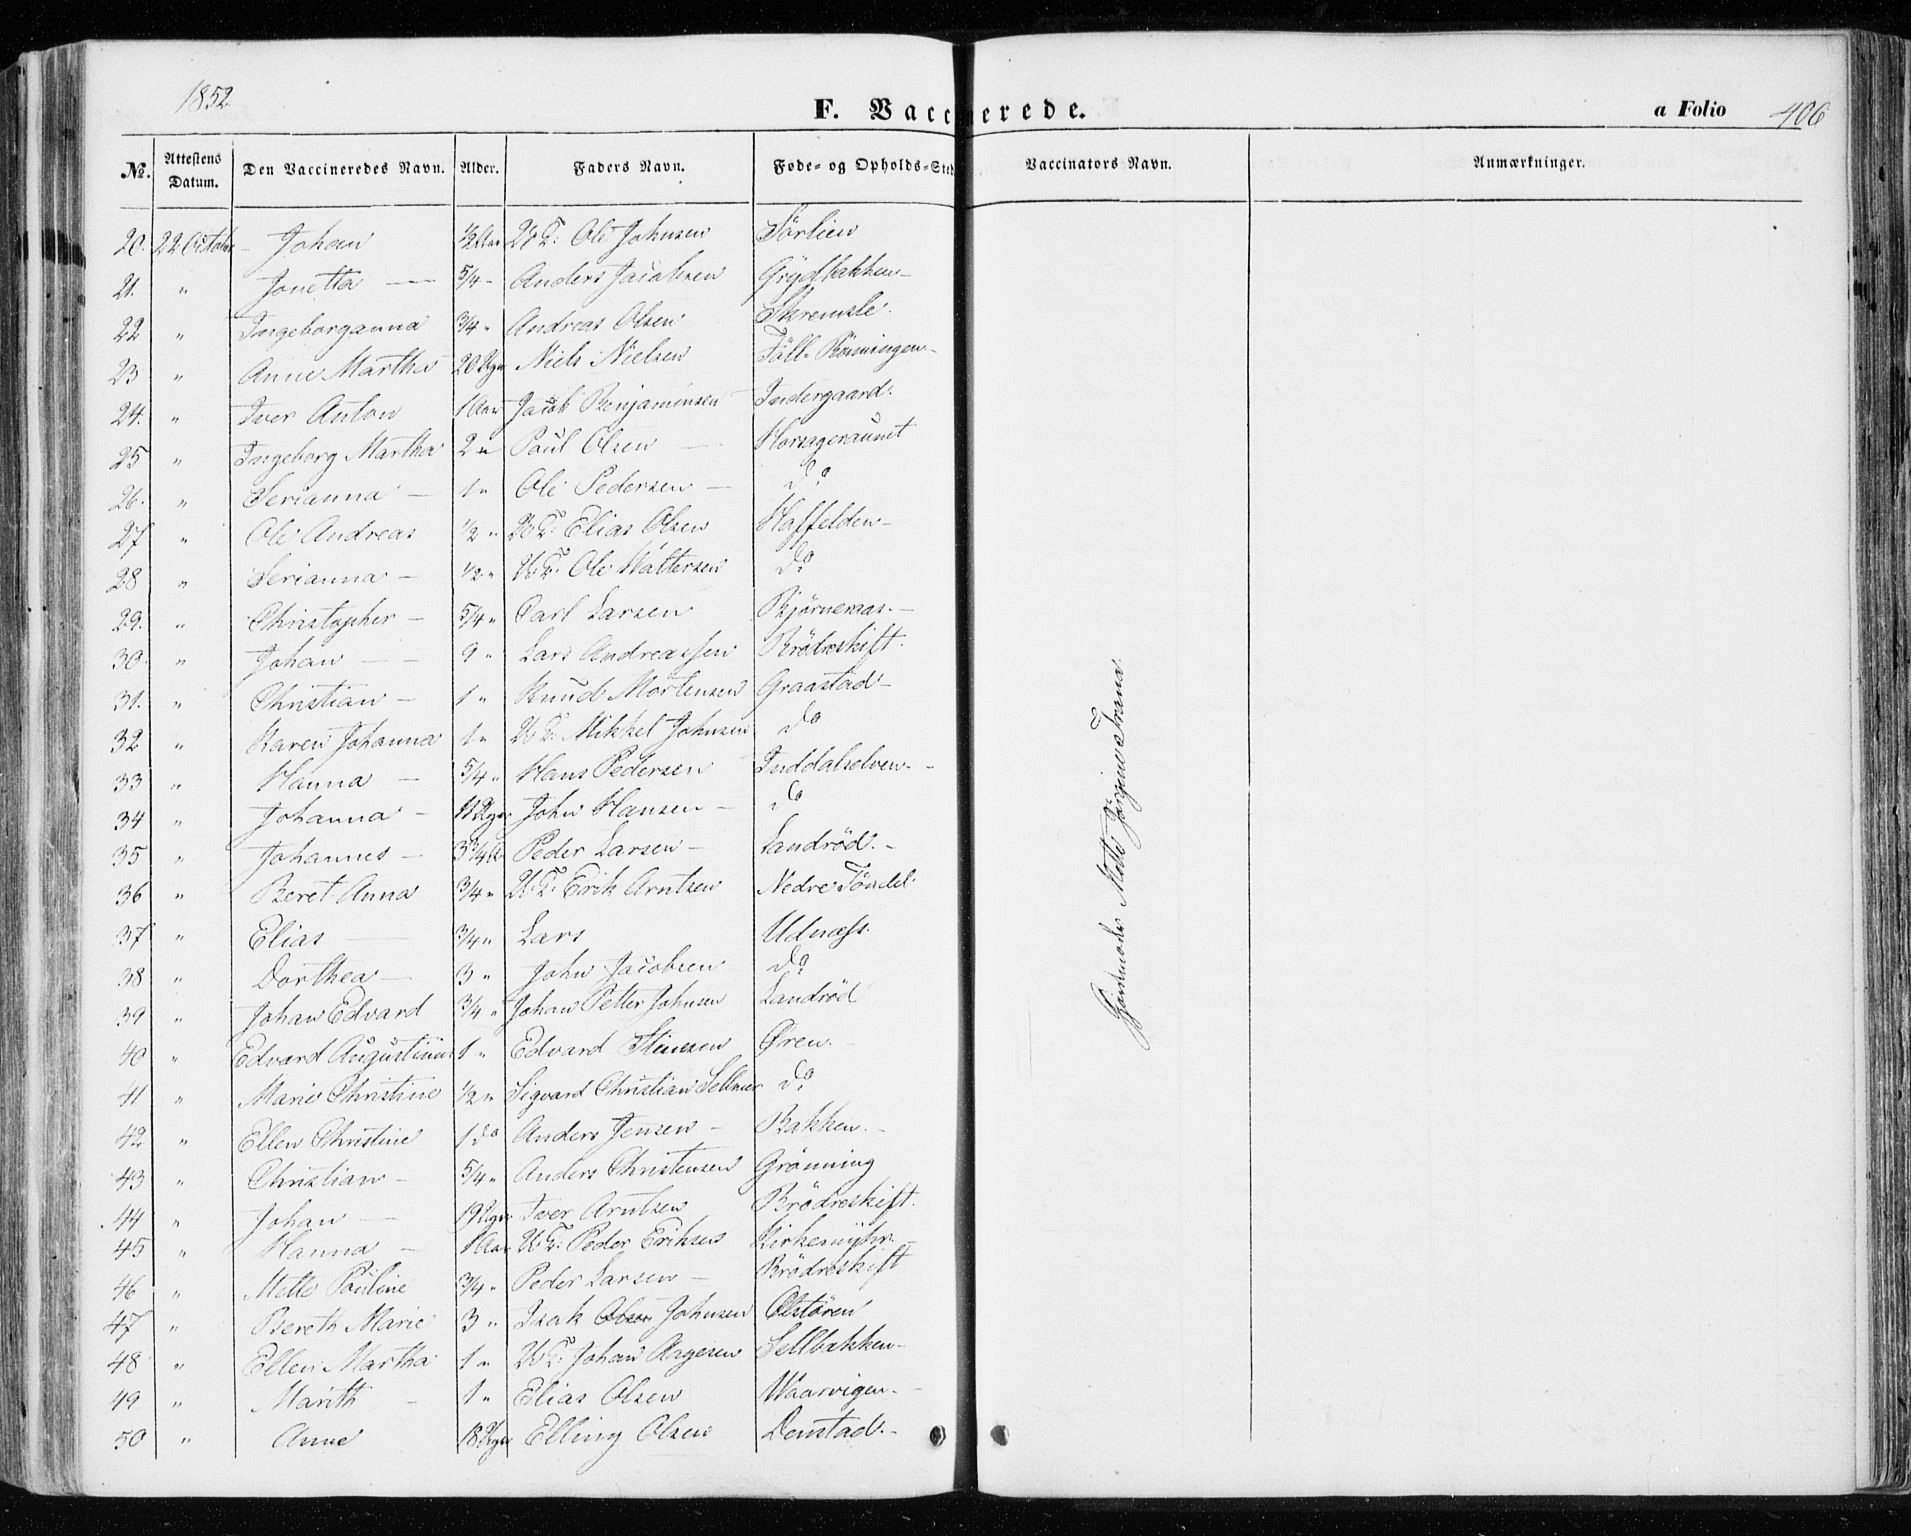 1852
F. Vaccinerede.
a Folio 406
No. Attestens Datum. Den Vaccineredes Navn. Alder. Faders Navn. Føde- og Opholds-Sted Vaccinators Navn. Anmærkninger.
20. 22 October Johan 1/2 Aar Ole Johnsen Sørlien
21. " Jonetta — 5/4 - Anders Jacobsen Grydbakken -
22 " Ingeborganna 3/4 " Andreas Olsen
23 " Anne Martha 20 Uger Niels Nielsen
24. " Iver Anton 1 Aar Jacob Benjaminsen Indergaard.
25 " Ingeborg Martha 2 " Paul Olsen —
26. " Serianna — 1 " Ole Pedersen — do
27 " Ole Andreas 1/2 " Elias Olsen Haffelden -
28 " Serianna — 1/2 " Ole do
29. " Christopher — 5/4 " Carl Larsen Bjørneraas. -
30. " Johan — — 9 " Lars Andreassen Brödreskift.
31. " Christian — 1 " Knud Mortensen Graastad -
32 " Karen Johanna 1 " Mikkel Johnsen do
33 " Hanna — 5/4 " Hans Pedersen Inddalselven - -
34 " Johanna — 11 Uger John Hansen — do
35 " Johannes — 3 3/4 Peder Larsen — Landröd. -
36 " Beret Anna 3/4 " Erik Arntsen Nedre Töndel
37 " Elias — 3/4 " Lars Udnæss.
38 " Dorthea — 3 " John Jacobsen do
39 " Johan Edvard 3/4 " Johan Petter Johnsen Landröd
40 " Edvard Augustinus 1 " Edvard Øren. -
41 " Marie Christine 1/2 " Sigvard Christian Sellmer do
42 " Ellen Christine 1 do Anders Jensen — Bakken. -
43 " Christian — 5/4 " Anders Christensen Grönning
44 " Johan — 19 Uger Iver Arntsen Brödreskift.
45 " Hanna — 1 Aar Peder Eriksen
46 " Mette Pauline 3/4 " Peder Larsen — Brödreskift
47 " Bereth Marie 3 " Isak Johnsen
48 " Ellen Martha 1 " Johan Aagesen Sellbakken -
49 " Marith — 1 " Elias Olsen Waarvigen. -
50 " Anne 18 Uger Elling Olsen Denstad. -
Mette Jörgine Trana.